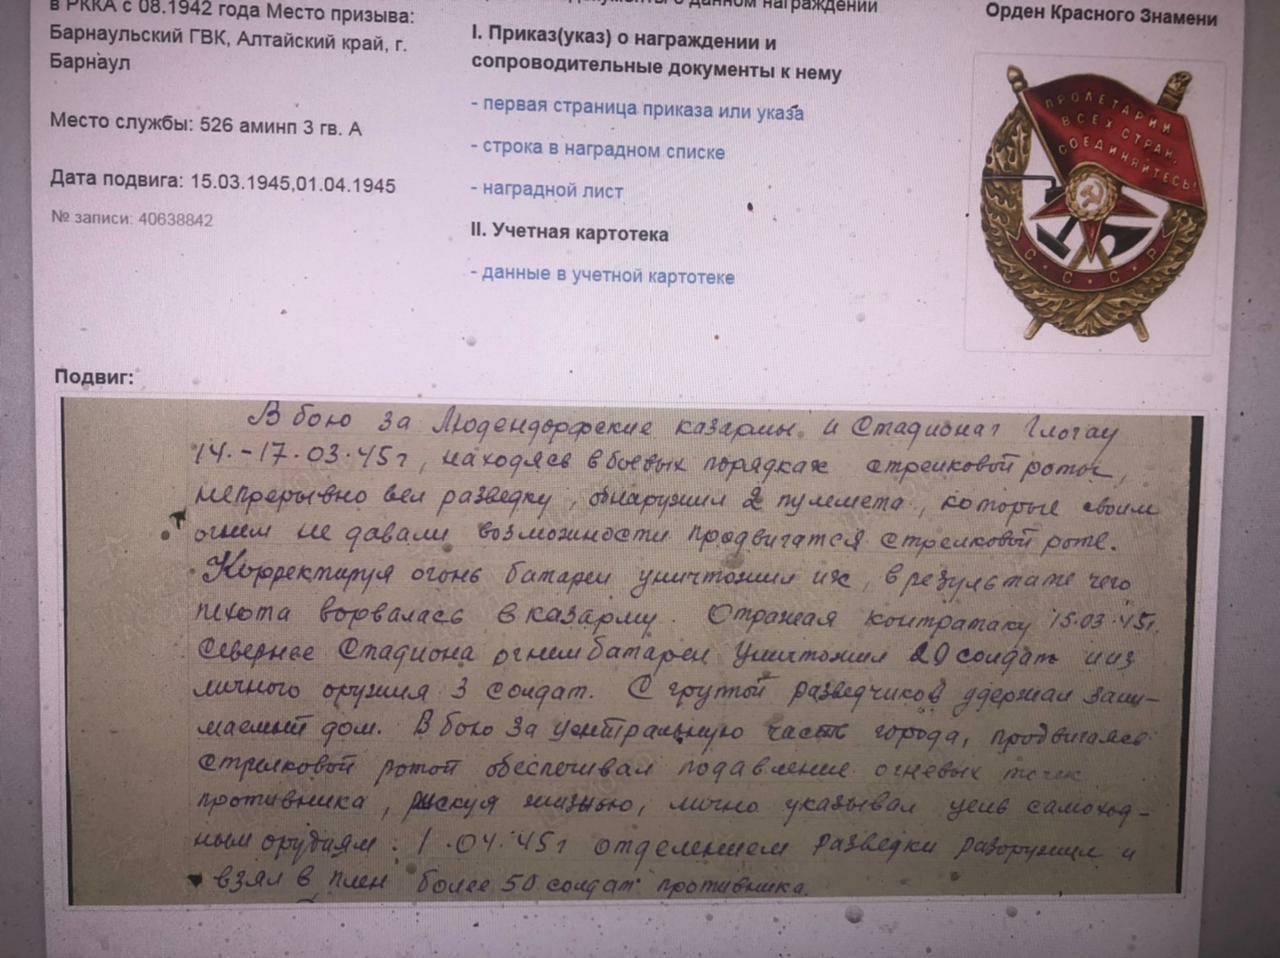 в РККА с 08.1942 года Место призыва:
Барнаульский ГВК, Алтайский край, г.
Барнаул
Место службы: 526 аминп 3 гв. А
Дата подвига: 15.03.1945,01.04.1945
№ записи: 40638842
документы о данном награждении
I. Приказ(указ) о награждении и
сопроводительные документы к нему
- первая страница приказа или указа
- строка в наградном списке
- наградной лист
II. Учетная картотека
- данные в учетной картотеке
Орден Красного Знамени
ПРОЛЕТАРИИ
ВСЕХ СТРАН,
СОЕДИНЯЙТЕСЬ!
С С С Р
Подвиг:
В бою за Людендорфские казармы и Стадион г Глогау
14.-17.03.45г, находясь в боевых порядках стрелковой роты,
непрерывно вел разведку, обнаружил 2 пулемета, которые своим
огнем не давали возможности продвигатся стрелковой роте.
Корректируя огонь батареи уничтожил их, в результате чего
пехота ворвалась в казарму. Отражая контратаку 15.03.45г.
Севернее Стадиона огнем батареи уничтожил 20 солдат и из
личного оружия 3 солдат. С группой разведчиков удержал зани-
маемый дом. В бою за центральную часть города, продвигаясь
стрелковой ротой обеспечивал подавление огневых точек
противника, рискуя жизнью, лично указывал цель самоход-
ным орудиям. 1.04.45г отделением разведки разоружил и
взял в плен более 50 солдат противника.